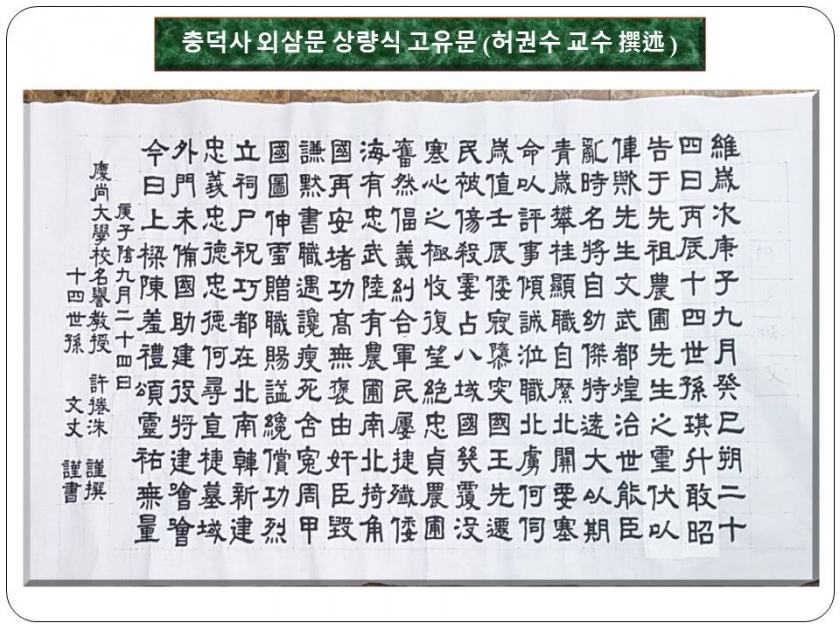 충덕사 외삼문 상량식 고유문 (허권수 교수 撰述)
維歲次庚子九月癸巳朔二十
四日丙辰十四世孫琪升敢昭
告于先祖農圃先生之靈伏以
偉歟先生文武都煌治世能臣
亂時名將自幼傑特遠大以期
青歲攀桂顯職自縻北關要塞
命以評事傾誠涖職北虜何伺
歲值壬辰倭寇隳突國王先遷
民被傷殺霎占八域國幾覆沒
寒心之極收復望絕忠貞農圃
奮然倡義糾合軍民屢捷殲倭
海有忠武陸有農圃南北掎角
國再安堵功高無褒由奸臣毀
謙默書職遇讒瘦死舍寃周甲
國圖伸雪贈職賜謚纔償功烈
立祠尸祝巧都在北南韓新建
忠義忠德忠德何尋直捷墓域
外門未備國助建役將建噲噲
今日上樑陳羞禮頌靈祐無量
庚子陰九月二十四日
慶尚大學校名譽教授 許捲洙 謹撰
十四世孫 文丈 謹書